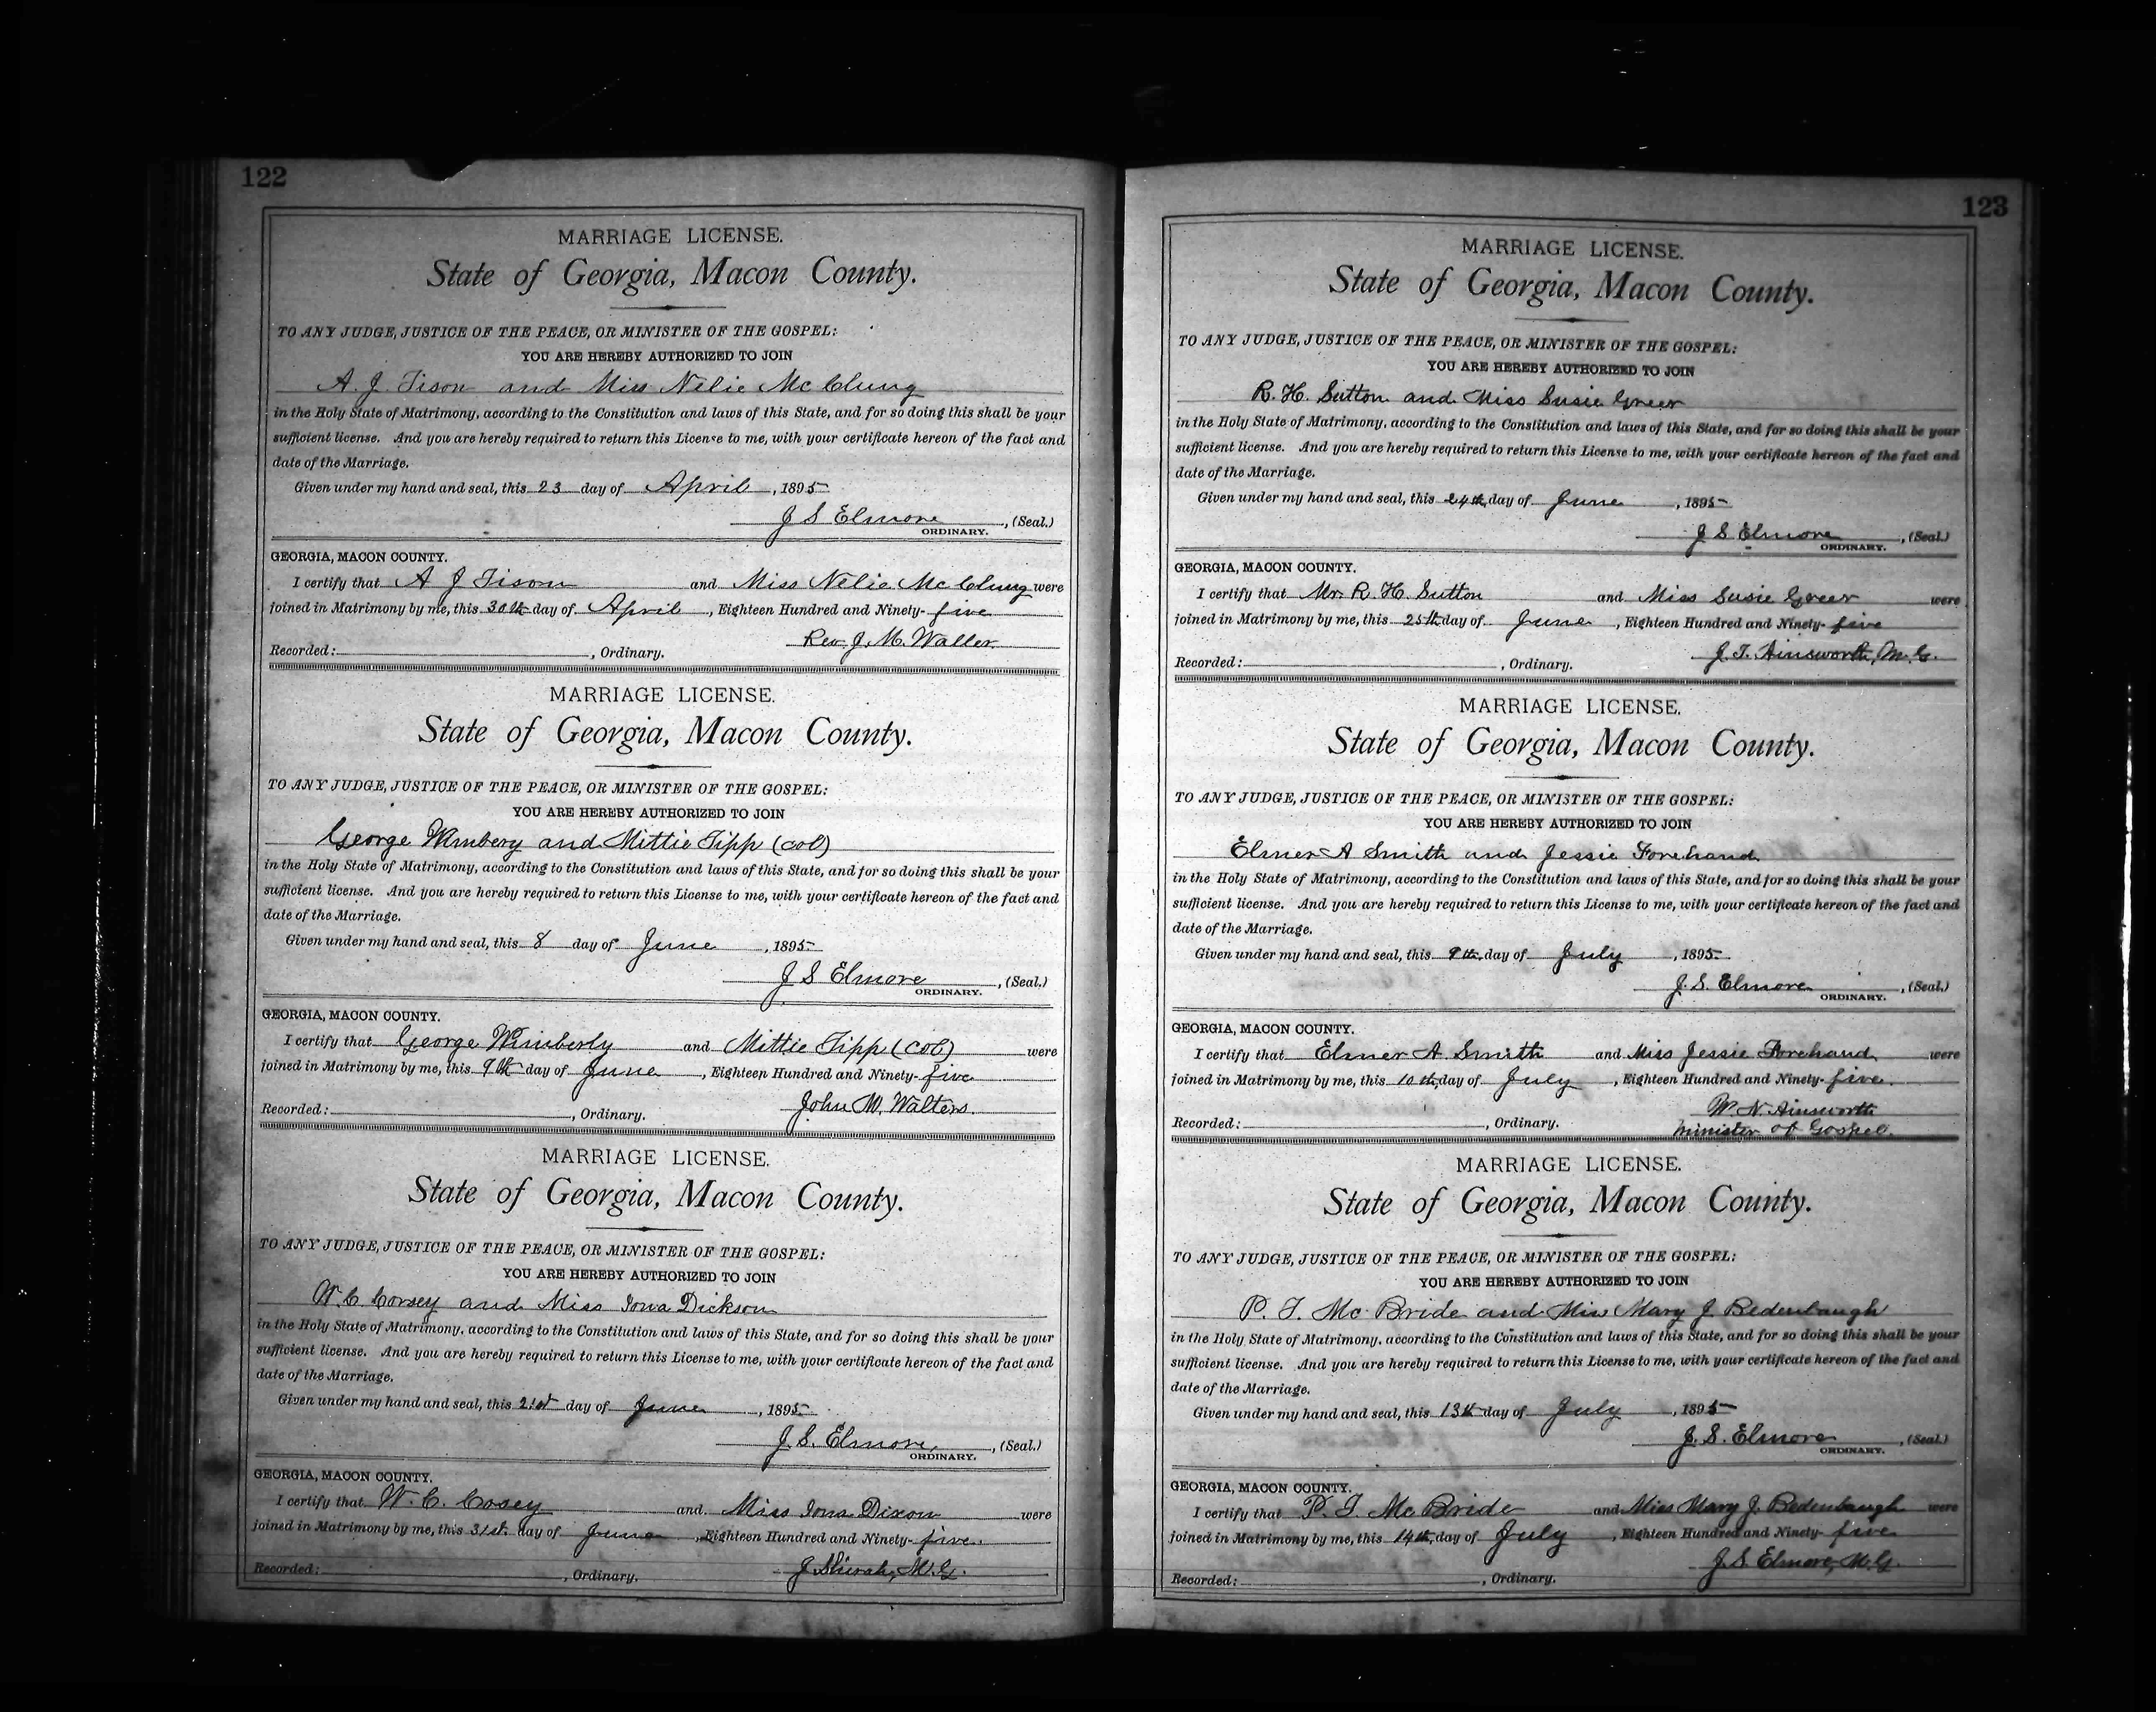 122
MARRIAGE LICENSE.
State of Georgia, Macon County.
TO ANY JUDGE, JUSTICE OF THE PEACE, OR MINISTER OF THE GOSPEL:
YOU ARE HEREBY AUTHORIZED TO JOIN
A. J. Tison and Miss Nelie McClung
in the Holy State of Matrimony, according to the Constitution and laws of this State, and for so doing this shall be your
sufficient license. And you are hereby required to return this License to me, with your certificate hereon of the fact and
date of the Marriage.
Given under my hand and seal, this 23 day of April, 1895
J S Elmore, (Seal.)
ORDINARY.
GEORGIA, MACON COUNTY.
I certify that A J Tison and Miss Nelie McClung were
joined in Matrimony by me, this 30th day of April, Eighteen Hundred and Ninety-five
Rev. J. M. Waller.
Recorded: , Ordinary.
MARRIAGE LICENSE.
State of Georgia, Macon County.
TO ANY JUDGE, JUSTICE OF THE PEACE, OR MINISTER OF THE GOSPEL:
YOU ARE HEREBY AUTHORIZED TO JOIN
George Wimbery and Mittie Tipp (col)
in the Holy State of Matrimony, according to the Constitution and laws of this State, and for so doing this shall be your
sufficient license. And you are hereby required to return this License to me, with your certificate hereon of the fact and
date of the Marriage.
Given under my hand and seal, this 8 day of June, 1895
J S Elmore, (Seal.)
ORDINARY.
GEORGIA, MACON COUNTY.
I certify that George Wimberly and Mittie Tipp (Col) were
joined in Matrimony by me, this 9th day of June, Eighteen Hundred and Ninety-five
John W. Walters.
Recorded: , Ordinary.
MARRIAGE LICENSE.
State of Georgia, Macon County.
TO ANY JUDGE, JUSTICE OF THE PEACE, OR MINISTER OF THE GOSPEL:
YOU ARE HEREBY AUTHORIZED TO JOIN
W. C. Corsey and Miss Iowa Dickson
in the Holy State of Matrimony, according to the Constitution and laws of this State, and for so doing this shall be your
sufficient license. And you are hereby required to return this License to me, with your certificate hereon of the fact and
date of the Marriage.
Given under my hand and seal, this 21st day of June, 1895
J. S. Elmore, (Seal.)
ORDINARY.
GEORGIA, MACON COUNTY.
I certify that W. C. Cosey and Miss Iona Dixon were
joined in Matrimony by me, this 31st. day of June, Eighteen Hundred and Ninety-five.
J Shirah, M.G.
Recorded: , Ordinary.
123
MARRIAGE LICENSE.
State of Georgia, Macon County.
TO ANY JUDGE, JUSTICE OF THE PEACE, OR MINISTER OF THE GOSPEL:
YOU ARE HEREBY AUTHORIZED TO JOIN
R. H. Sutton and Miss Susie Greer
in the Holy State of Matrimony, according to the Constitution and laws of this State, and for so doing this shall be your
sufficient license. And you are hereby required to return this License to me, with your certificate hereon of the fact and
date of the Marriage.
Given under my hand and seal, this 24th day of June, 1895
J S Elmore, (Seal.)
ORDINARY.
GEORGIA, MACON COUNTY.
I certify that Mr. R. H. Sutton and Miss Susie Greer were
joined in Matrimony by me, this 25th day of June, Eighteen Hundred and Ninety-five
J. T. Ainsworth, M.G.
Recorded: , Ordinary.
MARRIAGE LICENSE.
State of Georgia, Macon County.
TO ANY JUDGE, JUSTICE OF THE PEACE, OR MINISTER OF THE GOSPEL:
YOU ARE HEREBY AUTHORIZED TO JOIN
Elmer A Smith and Jessie Forehand
in the Holy State of Matrimony, according to the Constitution and laws of this State, and for so doing this shall be your
sufficient license. And you are hereby required to return this License to me, with your certificate hereon of the fact and
date of the Marriage.
Given under my hand and seal, this 9th day of July, 1895
J. S. Elmore, (Seal.)
ORDINARY.
GEORGIA, MACON COUNTY.
I certify that Elmer A. Smith and Miss Jessie Forehand were
joined in Matrimony by me, this 10th day of July, Eighteen Hundred and Ninety-five.
W. N. Ainsworth
Minister of Gospel.
Recorded: , Ordinary.
MARRIAGE LICENSE.
State of Georgia, Macon County.
TO ANY JUDGE, JUSTICE OF THE PEACE, OR MINISTER OF THE GOSPEL:
YOU ARE HEREBY AUTHORIZED TO JOIN
P. T. McBride and Miss Mary J Redenbaugh
in the Holy State of Matrimony, according to the Constitution and laws of this State, and for so doing this shall be your
sufficient license. And you are hereby required to return this License to me, with your certificate hereon of the fact and
date of the Marriage.
Given under my hand and seal, this 13th day of July, 1895
J. S. Elmore, (Seal.)
ORDINARY.
GEORGIA, MACON COUNTY.
I certify that P. T. McBride and Miss Mary J. Redenbaugh were
joined in Matrimony by me, this 14th day of July, Eighteen Hundred and Ninety-five
J. S. Elmore, M.G.
Recorded: , Ordinary.